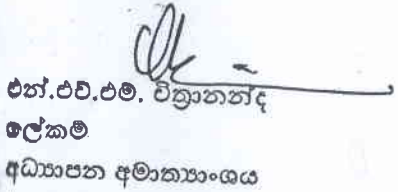 එන්.එච්.එම්. චිත්‍රානන්ද
ලේකම්
අධ්‍යාපන අමාත්‍යාංශය